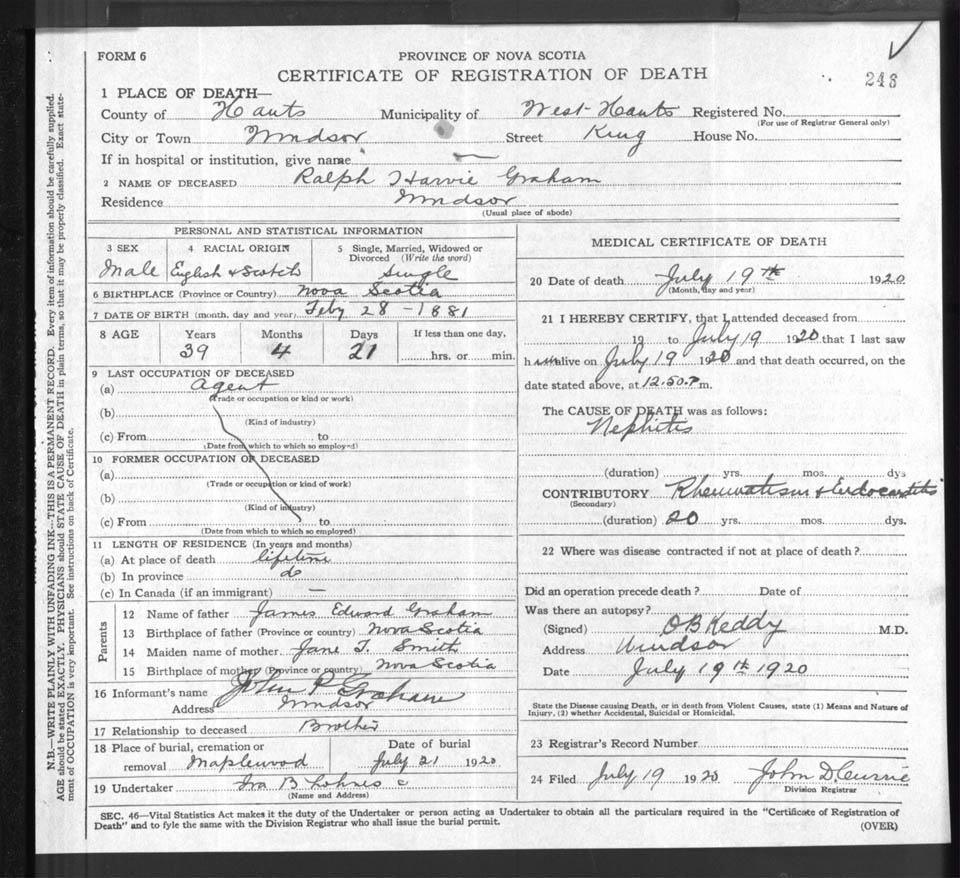 FORM 6
PROVINCE OF NOVA SCOTIA
CERTIFICATE OF REGISTRATION OF DEATH
248
1 PLACE OF DEATH—
County of Hants Municipality of West Hants Registered No.
(For use of Registrar General only)
City or Town Windsor Street King House No.
If in hospital or institution, give name —
2 NAME OF DECEASED Ralph Harvie Graham
Residence Windsor
(Usual place of abode)
PERSONAL AND STATISTICAL INFORMATION
3 SEX 4 RACIAL ORIGIN 5 Single, Married, Widowed or Divorced (Write the word)
Male English & Scotch Single
6 BIRTHPLACE (Province or Country) Nova Scotia
7 DATE OF BIRTH (month, day and year) Feby 28 - 1881
8 AGE Years Months Days If less than one day,
39 4 21 hrs. or min.
9 LAST OCCUPATION OF DECEASED
(a) Agent
(Trade or occupation or kind of work)
(b)
(Kind of industry)
(c) From to
(Date from which to which so employed)
10 FORMER OCCUPATION OF DECEASED
(a)
(Trade or occupation or kind of work)
(b)
(Kind of industry)
(c) From to
(Date from which to which so employed)
11 LENGTH OF RESIDENCE (In years and months)
(a) At place of death lifetime
(b) In province do
(c) In Canada (if an immigrant) —
Parents
12 Name of father James Edward Graham
13 Birthplace of father (Province or country) Nova Scotia
14 Maiden name of mother Jane T. Smith
15 Birthplace of mother (Province or country) Nova Scotia
16 Informant's name John P Graham
Address Windsor
17 Relationship to deceased Brother
18 Place of burial, cremation or removal Maplewood
Date of burial July 21 1920
19 Undertaker Ira B
(Name and Address)
MEDICAL CERTIFICATE OF DEATH
20 Date of death July 19th 1920
(Month, day and year)
21 I HEREBY CERTIFY, that I attended deceased from
19 to July 19 1920 that I last saw
him alive on July 19 1920 and that death occurred, on the
date stated above, at 12.50 P m.
The CAUSE OF DEATH was as follows:
Nephitis
(duration) yrs. mos. dys
CONTRIBUTORY Rheumatism & Endocarditis
(Secondary)
(duration) 20 yrs. mos. dys.
22 Where was disease contracted if not at place of death?
Did an operation precede death? Date of
Was there an autopsy?
(Signed) O B Keddy M.D.
Address Windsor
Date July 19th 1920
State the Disease causing Death, or in death from Violent Causes, state (1) Means and Nature of
Injury, (2) whether Accidental, Suicidal or Homicidal.
23 Registrar's Record Number
24 Filed July 19 1920 John D. Currie
Division Registrar
SEC. 46—Vital Statistics Act makes it the duty of the Undertaker or person acting as Undertaker to obtain all the particulars required in the "Certificate of Registration of
Death" and to fyle the same with the Division Registrar who shall issue the burial permit.
(OVER)
N.B.—WRITE PLAINLY WITH UNFADING INK—THIS IS A PERMANENT RECORD. Every item of information should be carefully supplied.
AGE should be stated EXACTLY. PHYSICIANS should STATE CAUSE OF DEATH in plain terms, so that it may be properly classified. Exact state-
ment of OCCUPATION is very important. See instructions on back of Certificate.